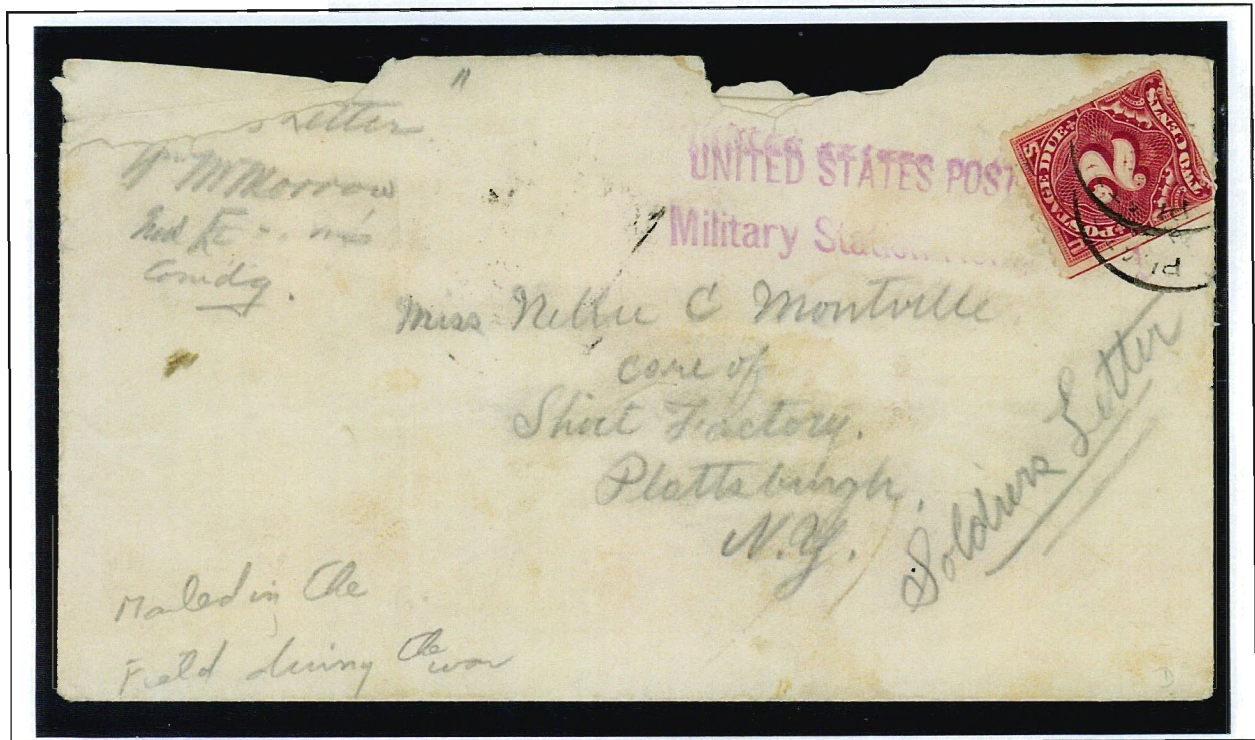 Letter
Wm M Morrow
Comdg.
UNITED STATES POST
Military Station
POSTAGE DUE
2
TWO CENTS
Miss Nellie C Montville
care of
Shirt Factory.
Plattsburgh,
N.Y.
Soldiers Letter
Mailed in the
Field during the war